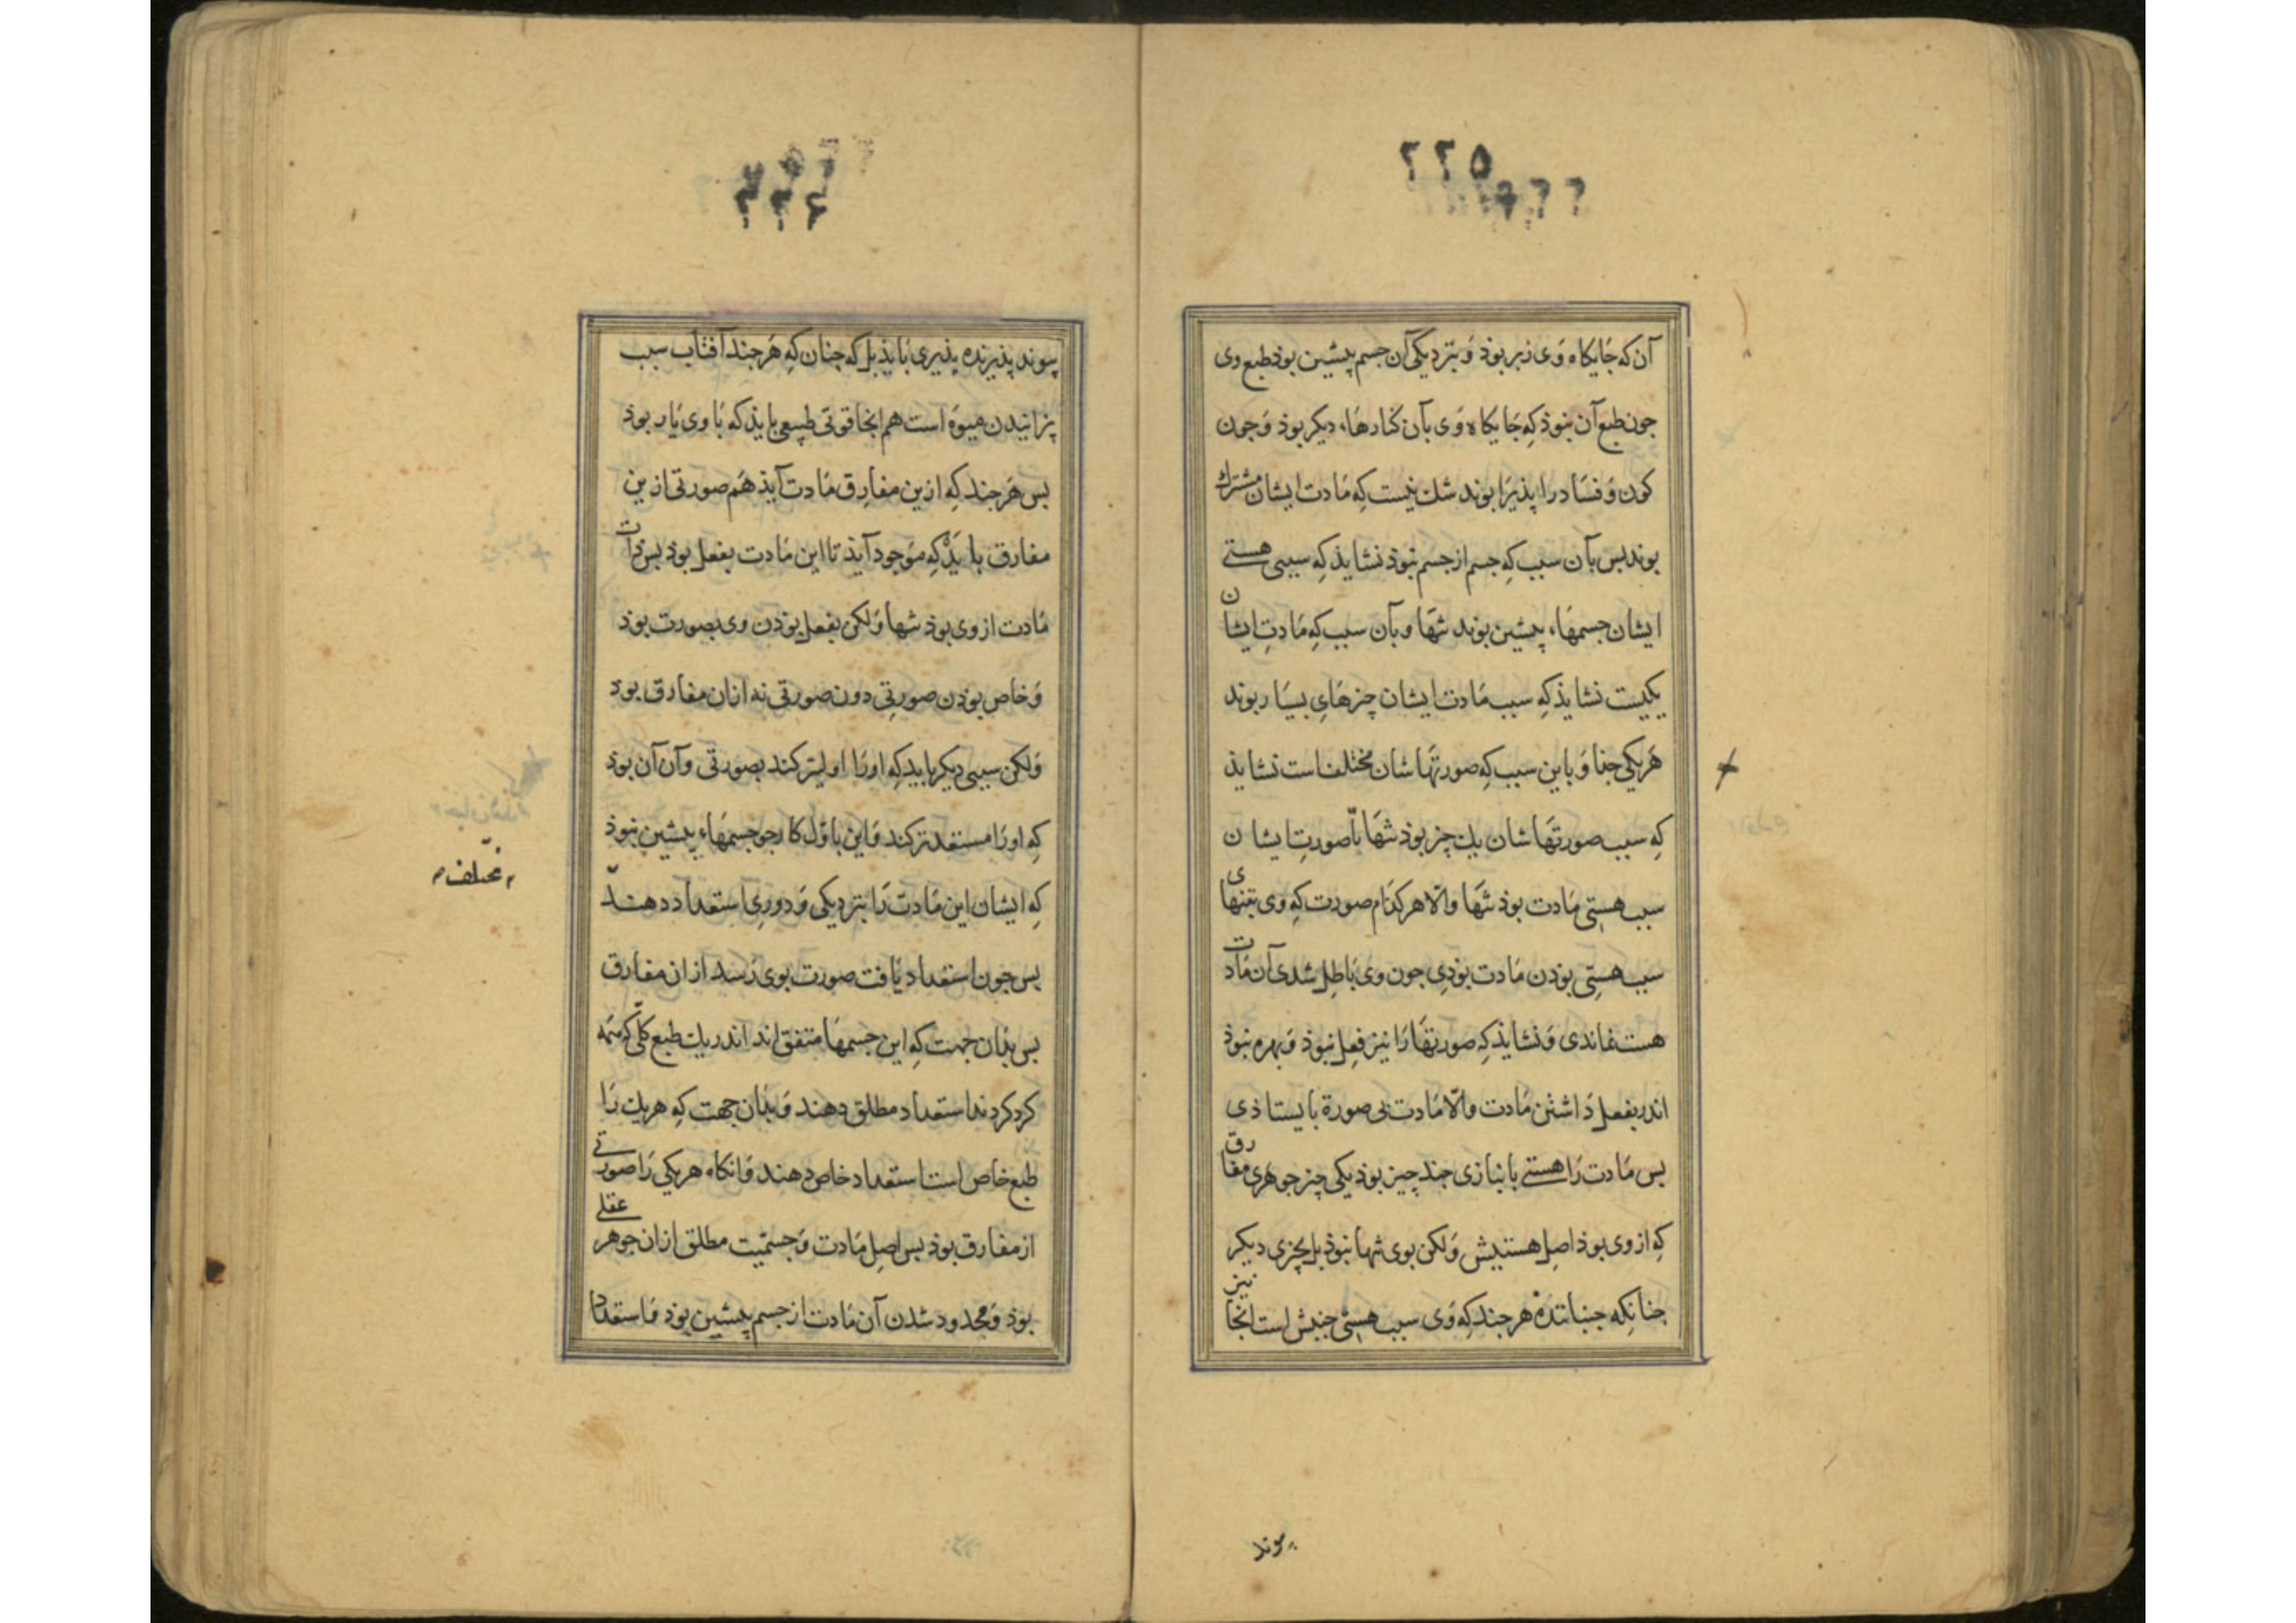 ٢٢٥
آن که جَایکاه وَی زبر بوذ وَ بنزدیکی آن جسم پیشین بوذ طبع وی
جون طبع آن نبوذ کِه جَایکاه وَی بآن کنارهَاء دیکر بوذ وَ جون
کون وَ فسَاد را پذیرَا بوند شك نیست کِه مَادت ایشان مشترك
بوند بس بآن سبب کِه جسم از جسم نبوذ نشایذ کِه سببی هستی
ایشان جسمهَاء پیشین بوند تنهَا و بآن سبب کِه مَادتِ ایشان
یکیست نشایذ کِه سبب مَادت ایشان چزهَایِ بسیَار بوند
هَریکی جذا وَ باین سبب کِه صورتهَاشان مختلف است نشایذ
کِه سبب صورتهَاشان یك چز بوذ تنهَا بلّا صورتِ ایشان
سبب هستیِ مَادت بوذ تنهَا والّا هر کدَام صورت کِه وی بتنهای
سبب هستیِ بوذن مَادت بوذیِ جون وی بَاطِل شدی آن مَادت
هست نماندی وَ نشایذ کِه صورتهَا رَا نیز فِعل نبوذ وَ بهره نبوذ
اندر بفعل دَاشتن مَادت والّا مَادت بی صورة بایستاذی
بس مَادت رَا هستی بانبازی جند چیز بوذ یکی چیز جوهری مفارق
کِه از وی بوذ اصِل هستیش وَلکن بوی تنها نبوذ بل بچزی دیکر
جنانکِه جنبانندهْ هر جند کِه وَی سبب هستیِ جنبش است انجا نیز
پیوند
٢٢٦
پیوند پذیرنده پذیری بَایذ بل که جنان کِه هَر جند آفتاب سبب
پزانیدن میوَه است هم انجا قوتی طبیعی بایذ که بَا وی یَار بوذ
بس هَر جند کِه ازین مفارِق مَادت آیذ هَم صورتی ازین
مفارق بایَذْ کِه موَجود آیذ تا این مَادت بفعل بوذ بس ذات
مَادت از وی بوذ تنها وَلکن بفعل بوذن وی بصورت بوذ
وَ خاص بوذن صورتِی دون صورتی نه ازان مفارق بوذ
وَلکن سببی دیکر بایذ کِه اورَا اولیتر کند بصورتی وآن آن بوذ
کِه اورَا مستعدتر کند وَاین باوّل کار جو جسمهَاء پیشین نبوذ
کِه ایشان این مَادت رَا بنزدیکی وَ دوریِ استعداد دهند
بس جون استعداد یَافت صورت بوی رَسد از ان مفارق
بس بذان جهت کِه این جسمهَا متفق اند اندر یك طبع کلّی کِه همه
کرد کردند استعداد مطلق دهند وَ بذان جهت کِه هر یك رَا
طبع خاص است استعداد خاص دهند وَانکاه هر یکی رَا صورتی
از مفارق بوذ بس اصِل مَادت وَ جسمیّت مطلق ازان جوهر عقلی
بوذ وَ محدود شدن آن مَادت از جسم پیشین بوذ وَاستعداد
مختلف